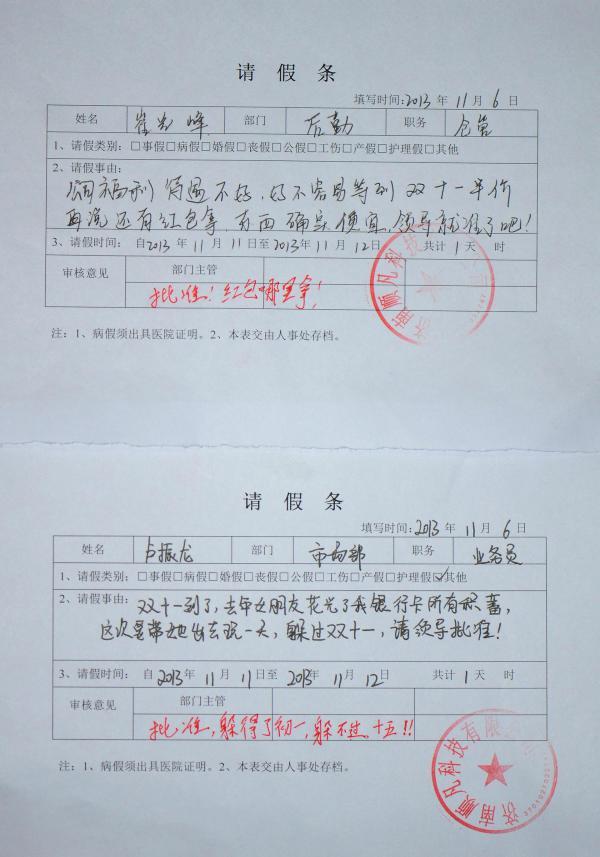 请假条
填写时间:2013 年 11 月 6 日
姓名 部门 后勤 职务 仓管
1、请假类别：□事假□病假□婚假□丧假□公假□工伤□产假□护理假□其他
2、请假事由：
福利待遇不好，好不容易等到双十一半价
再说还有红包拿，东西确实便宜，领导就准了吧！
3、请假时间： 自2013 年 11 月 11 日至 2013 年 11 月 12 日 共计 1 天 时
审核意见 部门主管
批准！红包哪里拿！
济南顺凡科技有
注：1、病假须出具医院证明。2、本表交由人事处存档。
请假条
填写时间:2013 年 11 月 6 日
姓名 卢振龙 部门 市场部 职务 业务员
1、请假类别：□事假□病假□婚假□丧假□公假□工伤□产假□护理假☑其他
2、请假事由： 双十一到了，去年女朋友花光了我银行卡所有积蓄，
这次要带她出去玩一天，躲过双十一，请领导批准！
3、请假时间： 自 2013 年 11 月 11 日至 2013 年 11 月 12 日 共计 1 天 时
审核意见 部门主管
批准，躲得了初一，躲不过十五！！
济南顺凡科技有限
注：1、病假须出具医院证明。2、本表交由人事处存档。